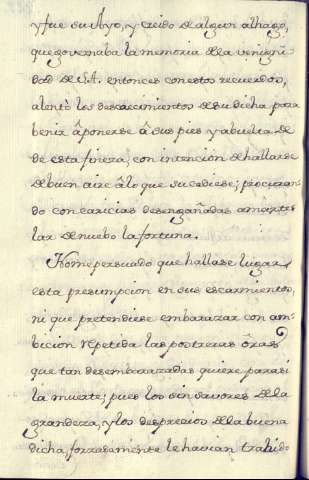 y fue su Ayo, y creido de algun alhago,
que governaba la memoria dela venigni
dad de S.A. entonces con estos recuerdos,
alentò los descaecimientos de su dicha para
benir â ponerse â sus pies y abuelta de
de esta fineza, con intencion de hallarse
de buen aire â lo que sucediese; procuran
do con caricias desengañadas amartel
lar de nuebo la fortuna.
No me persuado que hallase lugar
esta presumpcion en sus escarmientos,
ni que pretendiese embarazar con am
bicion repetida las postreras ôras
que tan desembarazadas quiere parasi
la muerte; pues los sinsavores dela
grandeza, y los desprecios dela buena
dicha, forzadamente le havian trahido